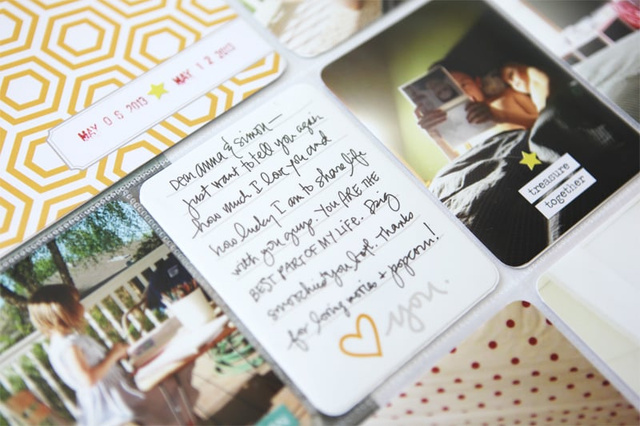 MAY 06 2013 MAY 12 2013
Dear anna & simon—
just want to tell you again
how much I love you and
how lucky I am to share life
with you guys. You ARE THE
BEST PART OF MY LIFE. Big
smooches you two. Thanks
for loving movies + popcorn!
you.
treasure
together